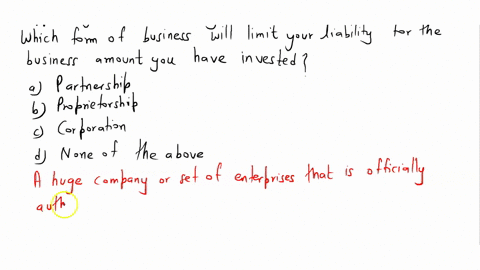 Which form of business will limit your liability for the
business amount you have invested?
a) Partnership
b) Proprietorship
c) Corporation
d) None of the above
A huge company or set of enterprises that is officially
auth